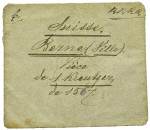 Suisse.
Berne (Ville)
Pièce
de 1 Kreutzer
de 1567.